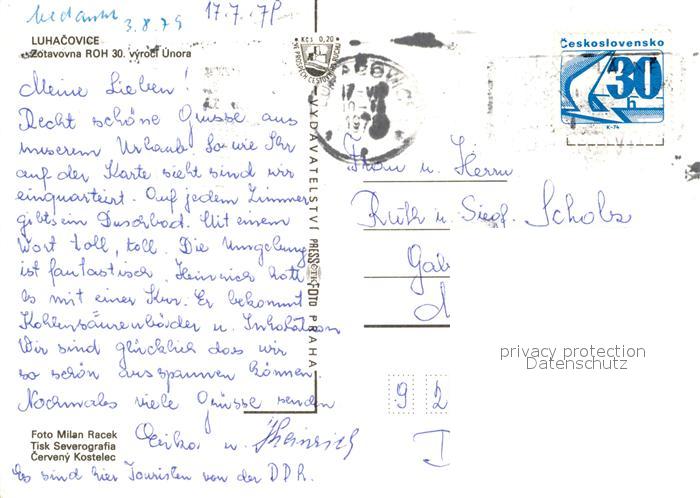 3.8.79 17.7.79
LUHAČOVICE
Zotavovna ROH 30. výročí Února
Kčs 0,20
Československo
30
h
K-74
LUHAČOVICE
Meine Lieben!
Recht schöne Grüsse aus
unserem Urlaub. So wie Ihr
auf der Karte sieht sind wir
einquartiert. Auf jedem Zimmer
gibts ein Duschbad. Mit einem
Wort toll, toll. Die Umgebung
ist fantastisch. Heinrich
es mit einer Kur. Er bekommt
Kohlensäurenbäder u. Inhalation
Wir sind glücklich dass wir
so schön ausspannen können.
Nochmales viele Grüsse senden
Erika u. Heinrich
Es sind hier Touristen von der DDR.
VYDAVATELSTVÍ PRESSFOTO PRAHA
Frau u. Herrn
Ruth u. Siegf. Scholz
Gab
9 2
D
Foto Milan Racek
Tisk Severografia
Červený Kostelec
privacy protection
Datenschutz